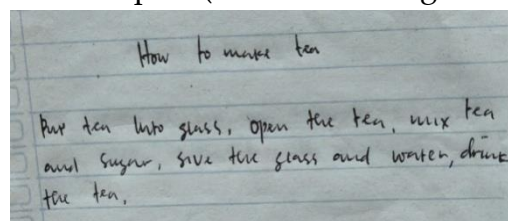 How to make tea
Put tea Into glass, open the tea, mix tea
and sugar, give the glass and water, drink
the tea,